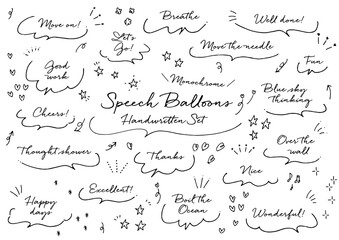 Move on!
Breathe
Well done!
Let's
Go!
Move the needle
Good
work
Fun
Monochrome
Blue sky
Thinking
Speech Balloons
Handwritten Set
Cheers!
Over the
wall
Thought shower
Thanks
Nice
Excellent!
Happy
days
Boil the
Ocean
Wonderful!